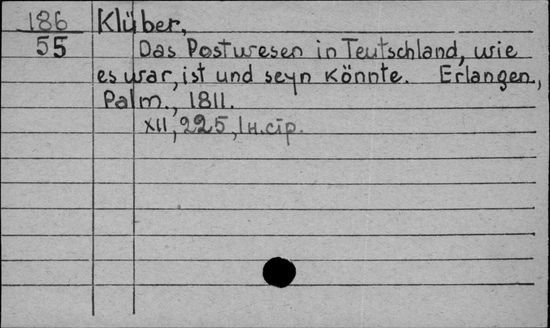 186 Klüber,
55 Das Postwesen in Teutschland, wie
es war, ist und seyn könnte. Erlangen,
Palm., 1811.
XII, 225, 1 н. стр.